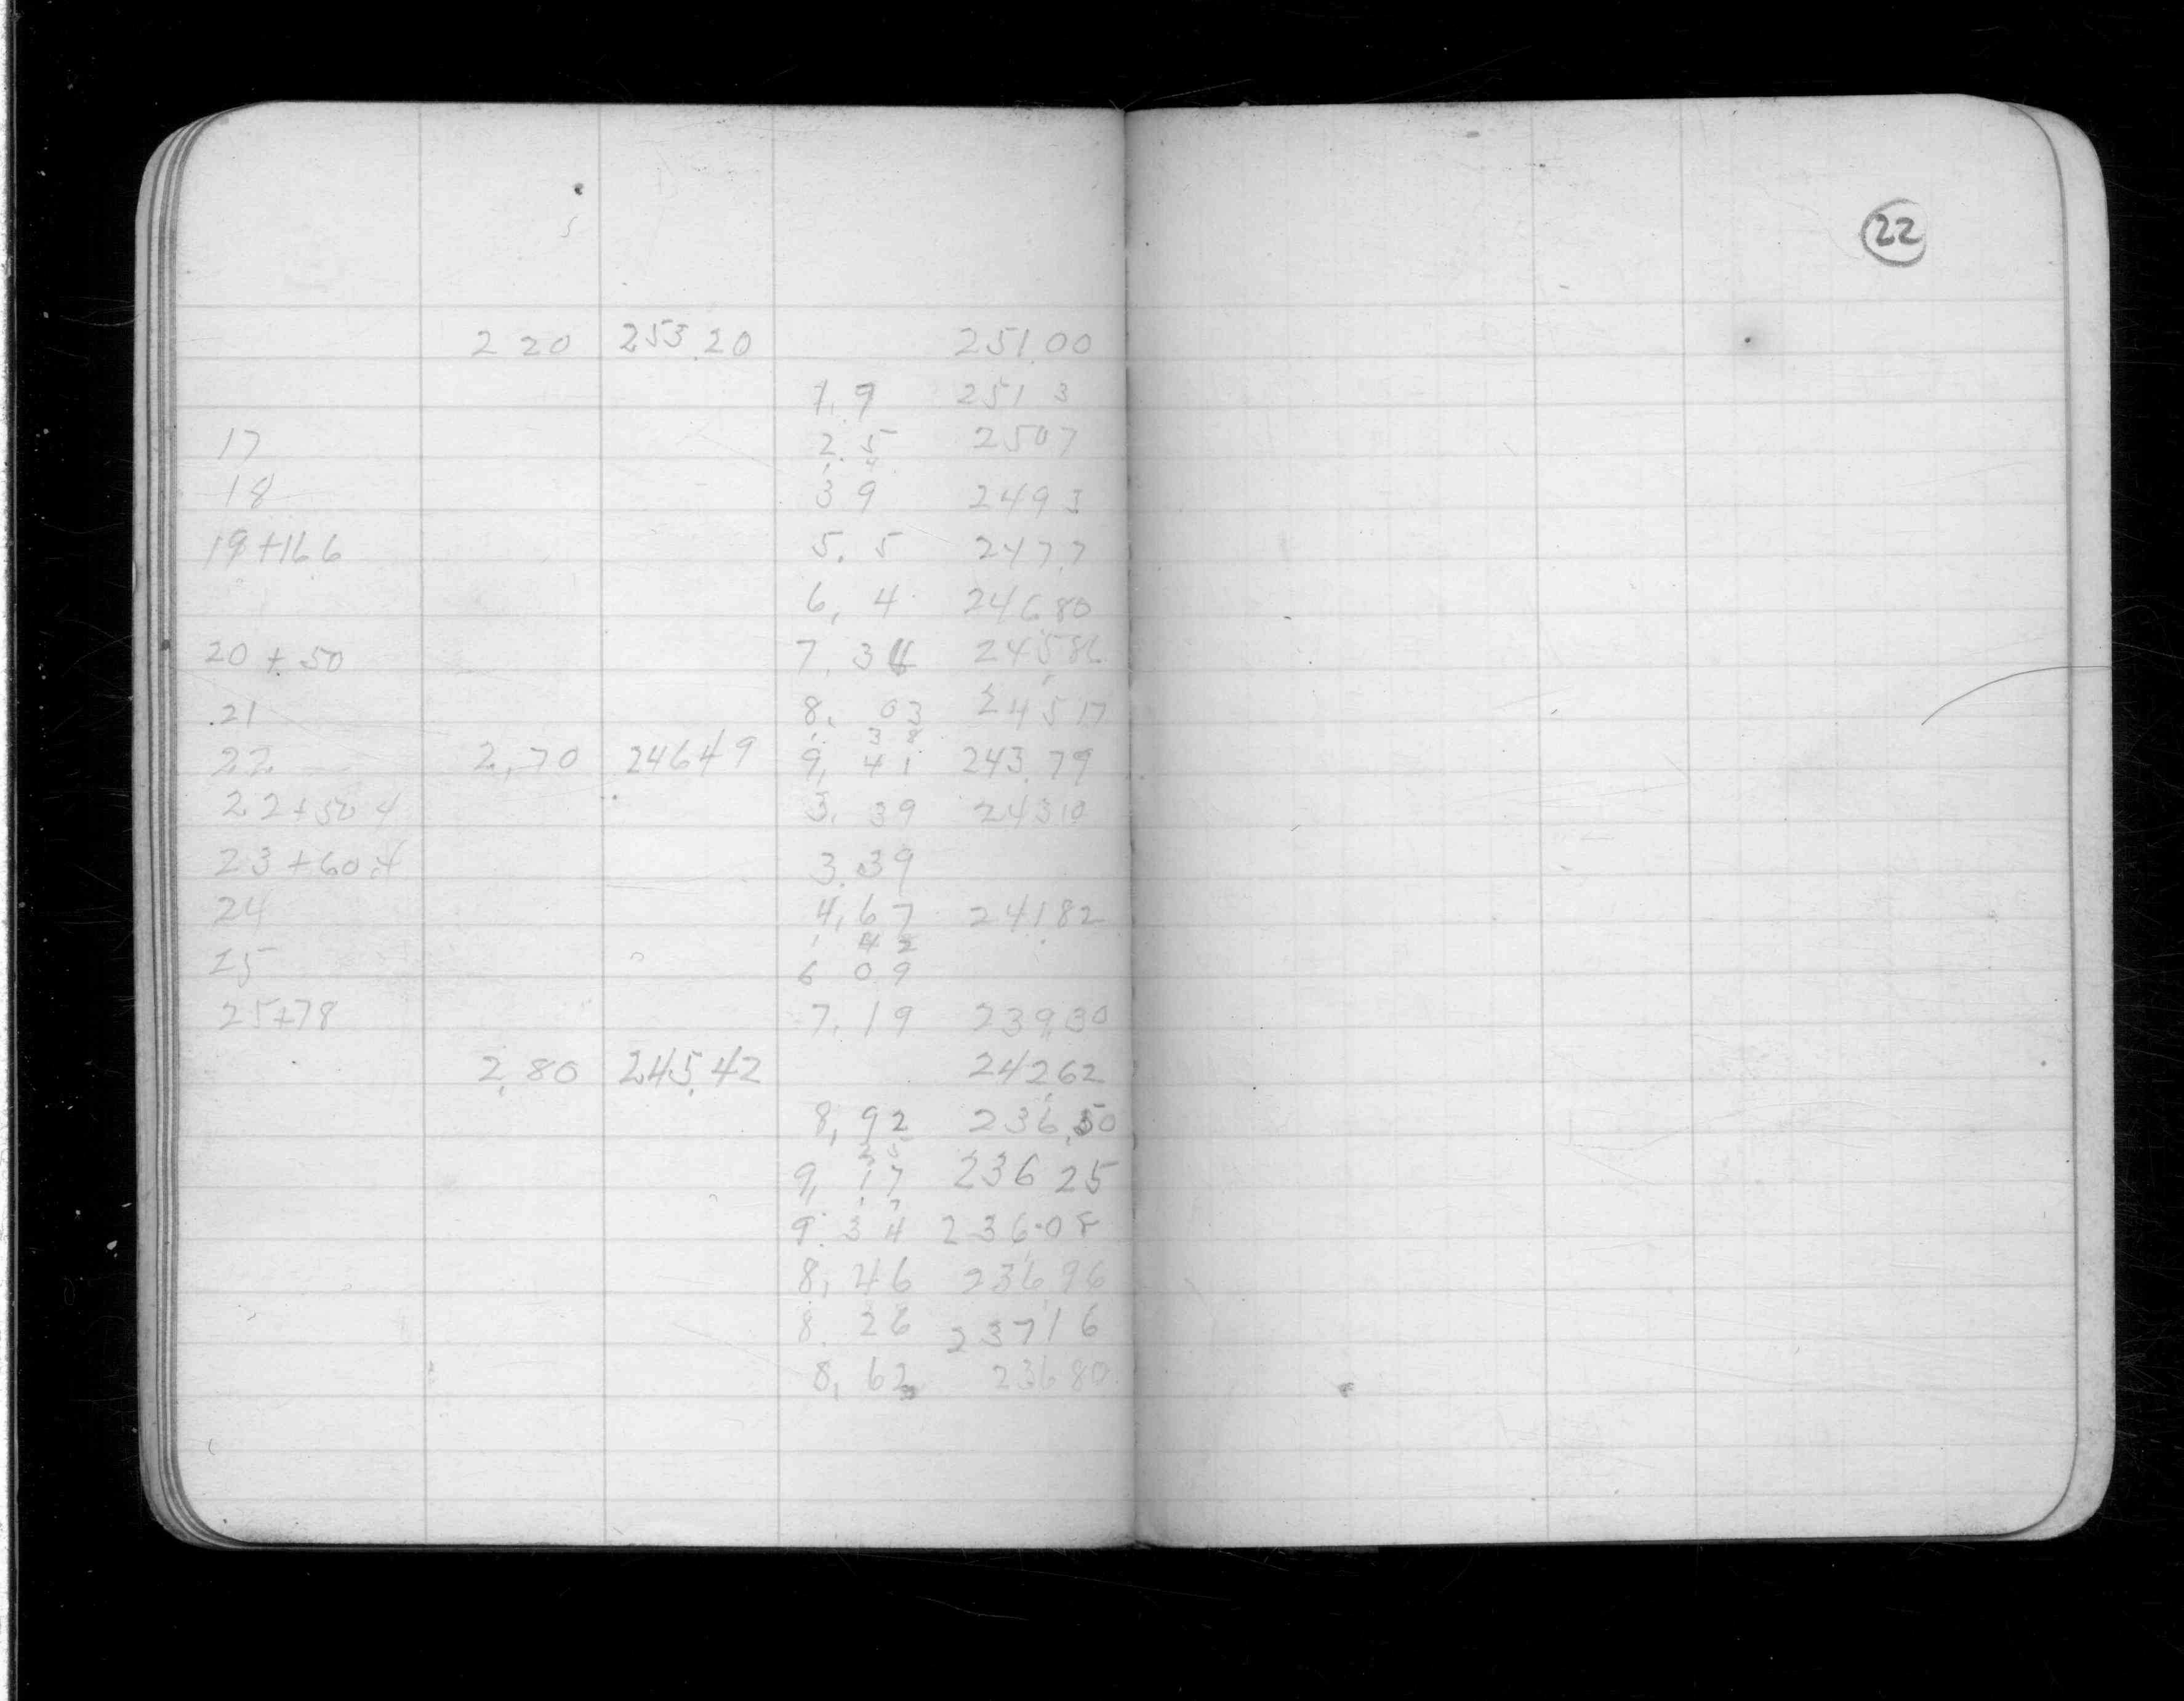 22
2 20 253.20 251.00
1.9 251 3
17 2.5 250 7
18 3 9 249 3
19+16.6 5. 5 247.7
6, 4 246.80
20 + 50 7. 34 245.86
21 8. 03 245 17
1. 3 8
22 2,70 246 49 9, 41 243.79
22+50 4 3. 39 243 10
23+60.4 3.39
24 4,67 241 82
1 42
25 6 09
25+78 7.19 239.30
2.80 245.42 242 62
8, 92 236.50
2 5
9, 17 236 25
1 7
9. 34 236.08
8, 46 236 96
8. 26 237 16
8, 62 236 80